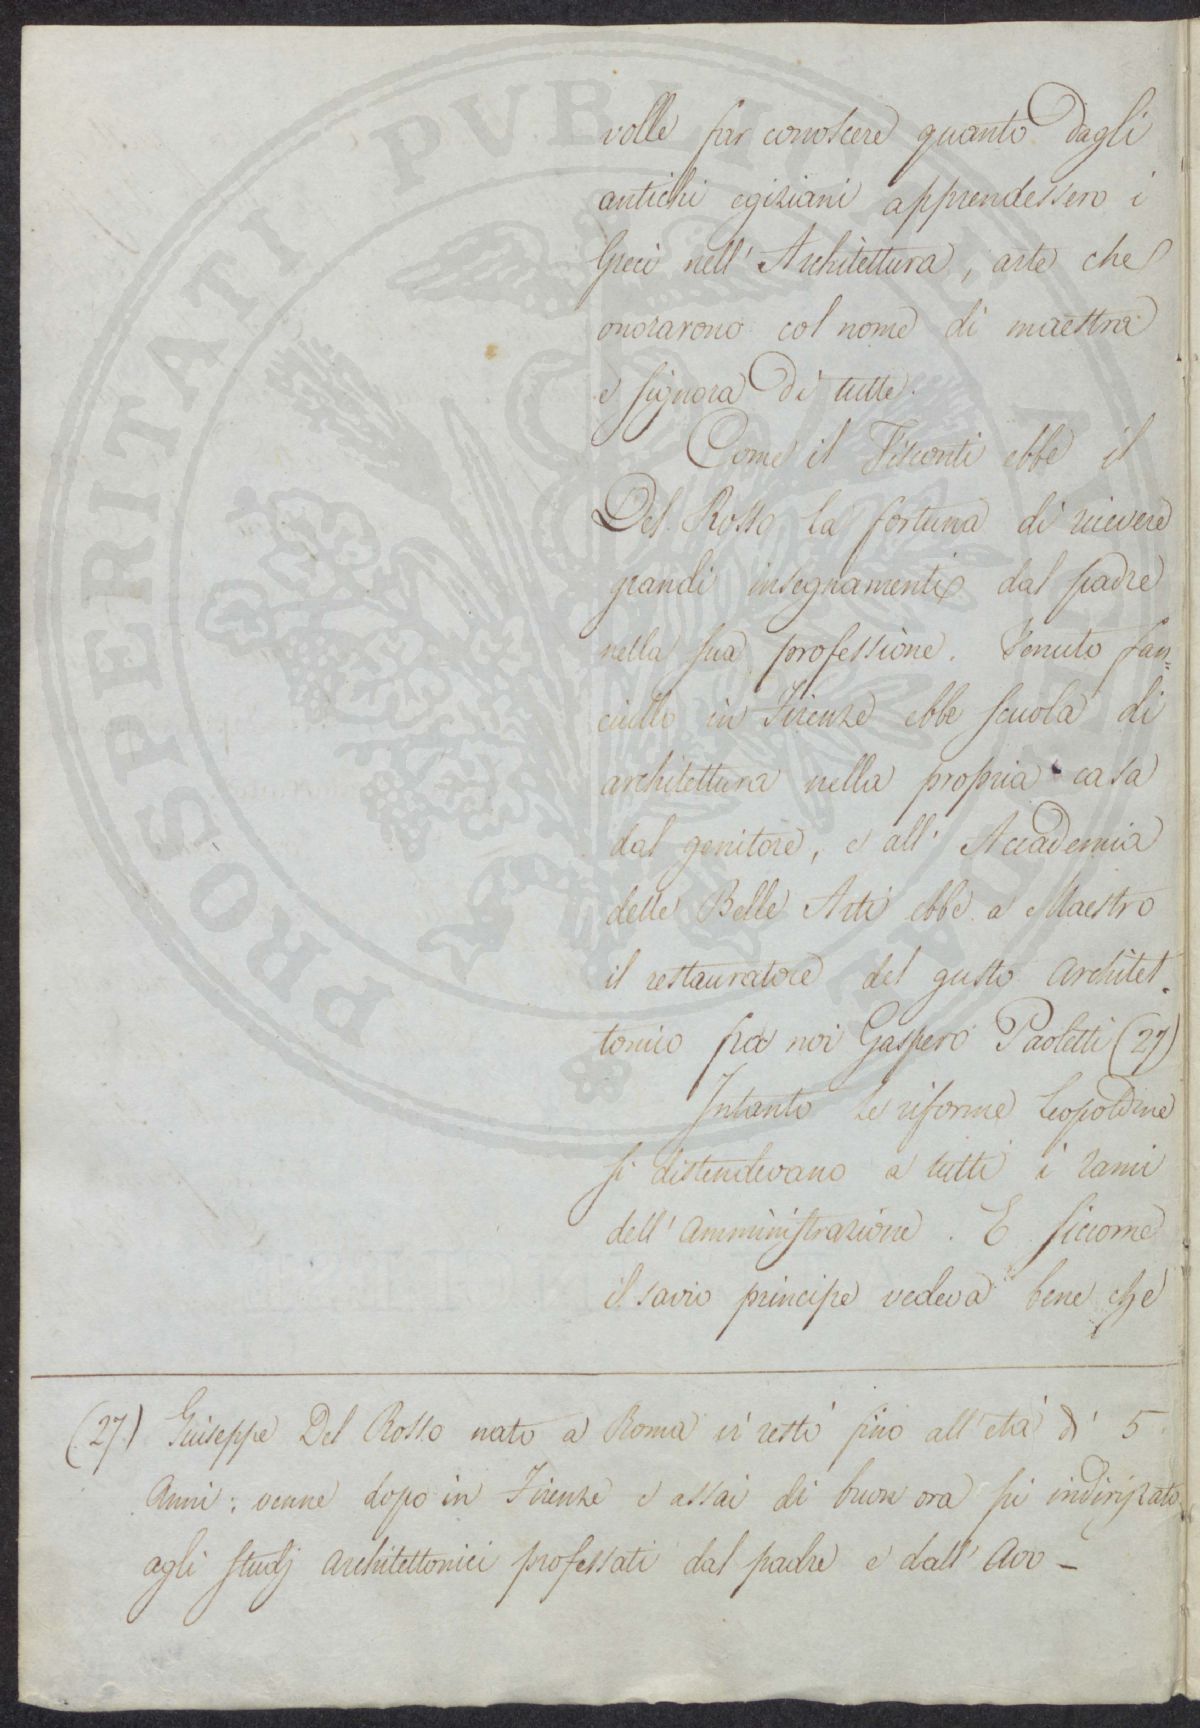 volle far conoscere quanto dagli
antichi egiziani apprendessero i
Greci nell' Architettura, arte che
onorarono col nome di maestra
e signora di tutte.
Come il Visconti ebbe il
Del Rosso la fortuna di ricevere
grandi insegnamenti dal padre
nella sua professione. Venuto fan=
ciullo in Firenze ebbe scuola di
architettura nella propria casa
dal genitore, e all' Accademia
delle Belle Arti ebbe a Maestro
il restauratore del gusto architet-
tonico fra noi Gaspero Paoletti (27)
Intanto le riforme Leopoldine
si distendevano a tutti i rami
dell' amministrazione. E siccome
il savio principe vedeva bene che
(27) Giuseppe Del Rosso nato a Roma vi restò fino all' età di 5
Anni; venne dopo in Firenze e assai di buon ora fù indirizzato
agli studj architettonici professati dal padre e dall' Avo -
PROSPERITATI PVBLICAE